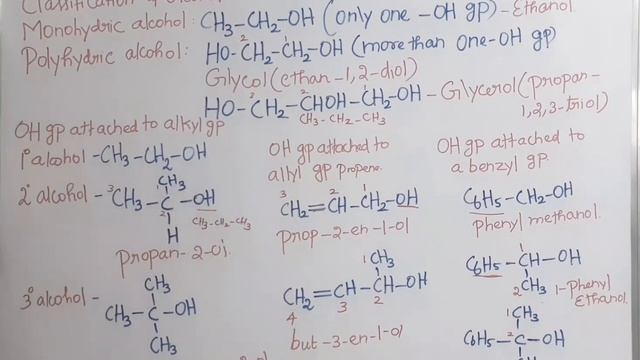 Classification
Monohydric alcohol: CH3-CH2-OH (only one -OH gp) - Ethanol
Polyhydric alcohol: HO-CH2-CH2-OH (more than one-OH gp)
2 1
Glycol (ethan-1,2-diol)
HO-CH2-CHOH-CH2-OH - Glycerol (propan-1,2,3-triol)
2 1
CH3-CH2-CH3
OH gp attached to alkyl gp
1° alcohol - CH3-CH2-OH
2° alcohol - 3CH3-C-OH
2
1CH3
2
H
CH3-CH2-CH3
Propan-2-ol
3° alcohol -
CH3
CH3-C-OH
CH3
OH gp attached to
allyl gp propene.
3 2 1
CH2=CH-CH2-OH
prop-2-en-1-ol
1CH3
CH2=CH-CH-OH
4 3 2
but-3-en-1-ol
OH gp attached to
a benzyl gp.
C6H5-CH2-OH
phenyl methanol.
1
C6H5-CH-OH
2CH3
1-phenyl
Ethanol.
1CH3
C6H5-2C-OH